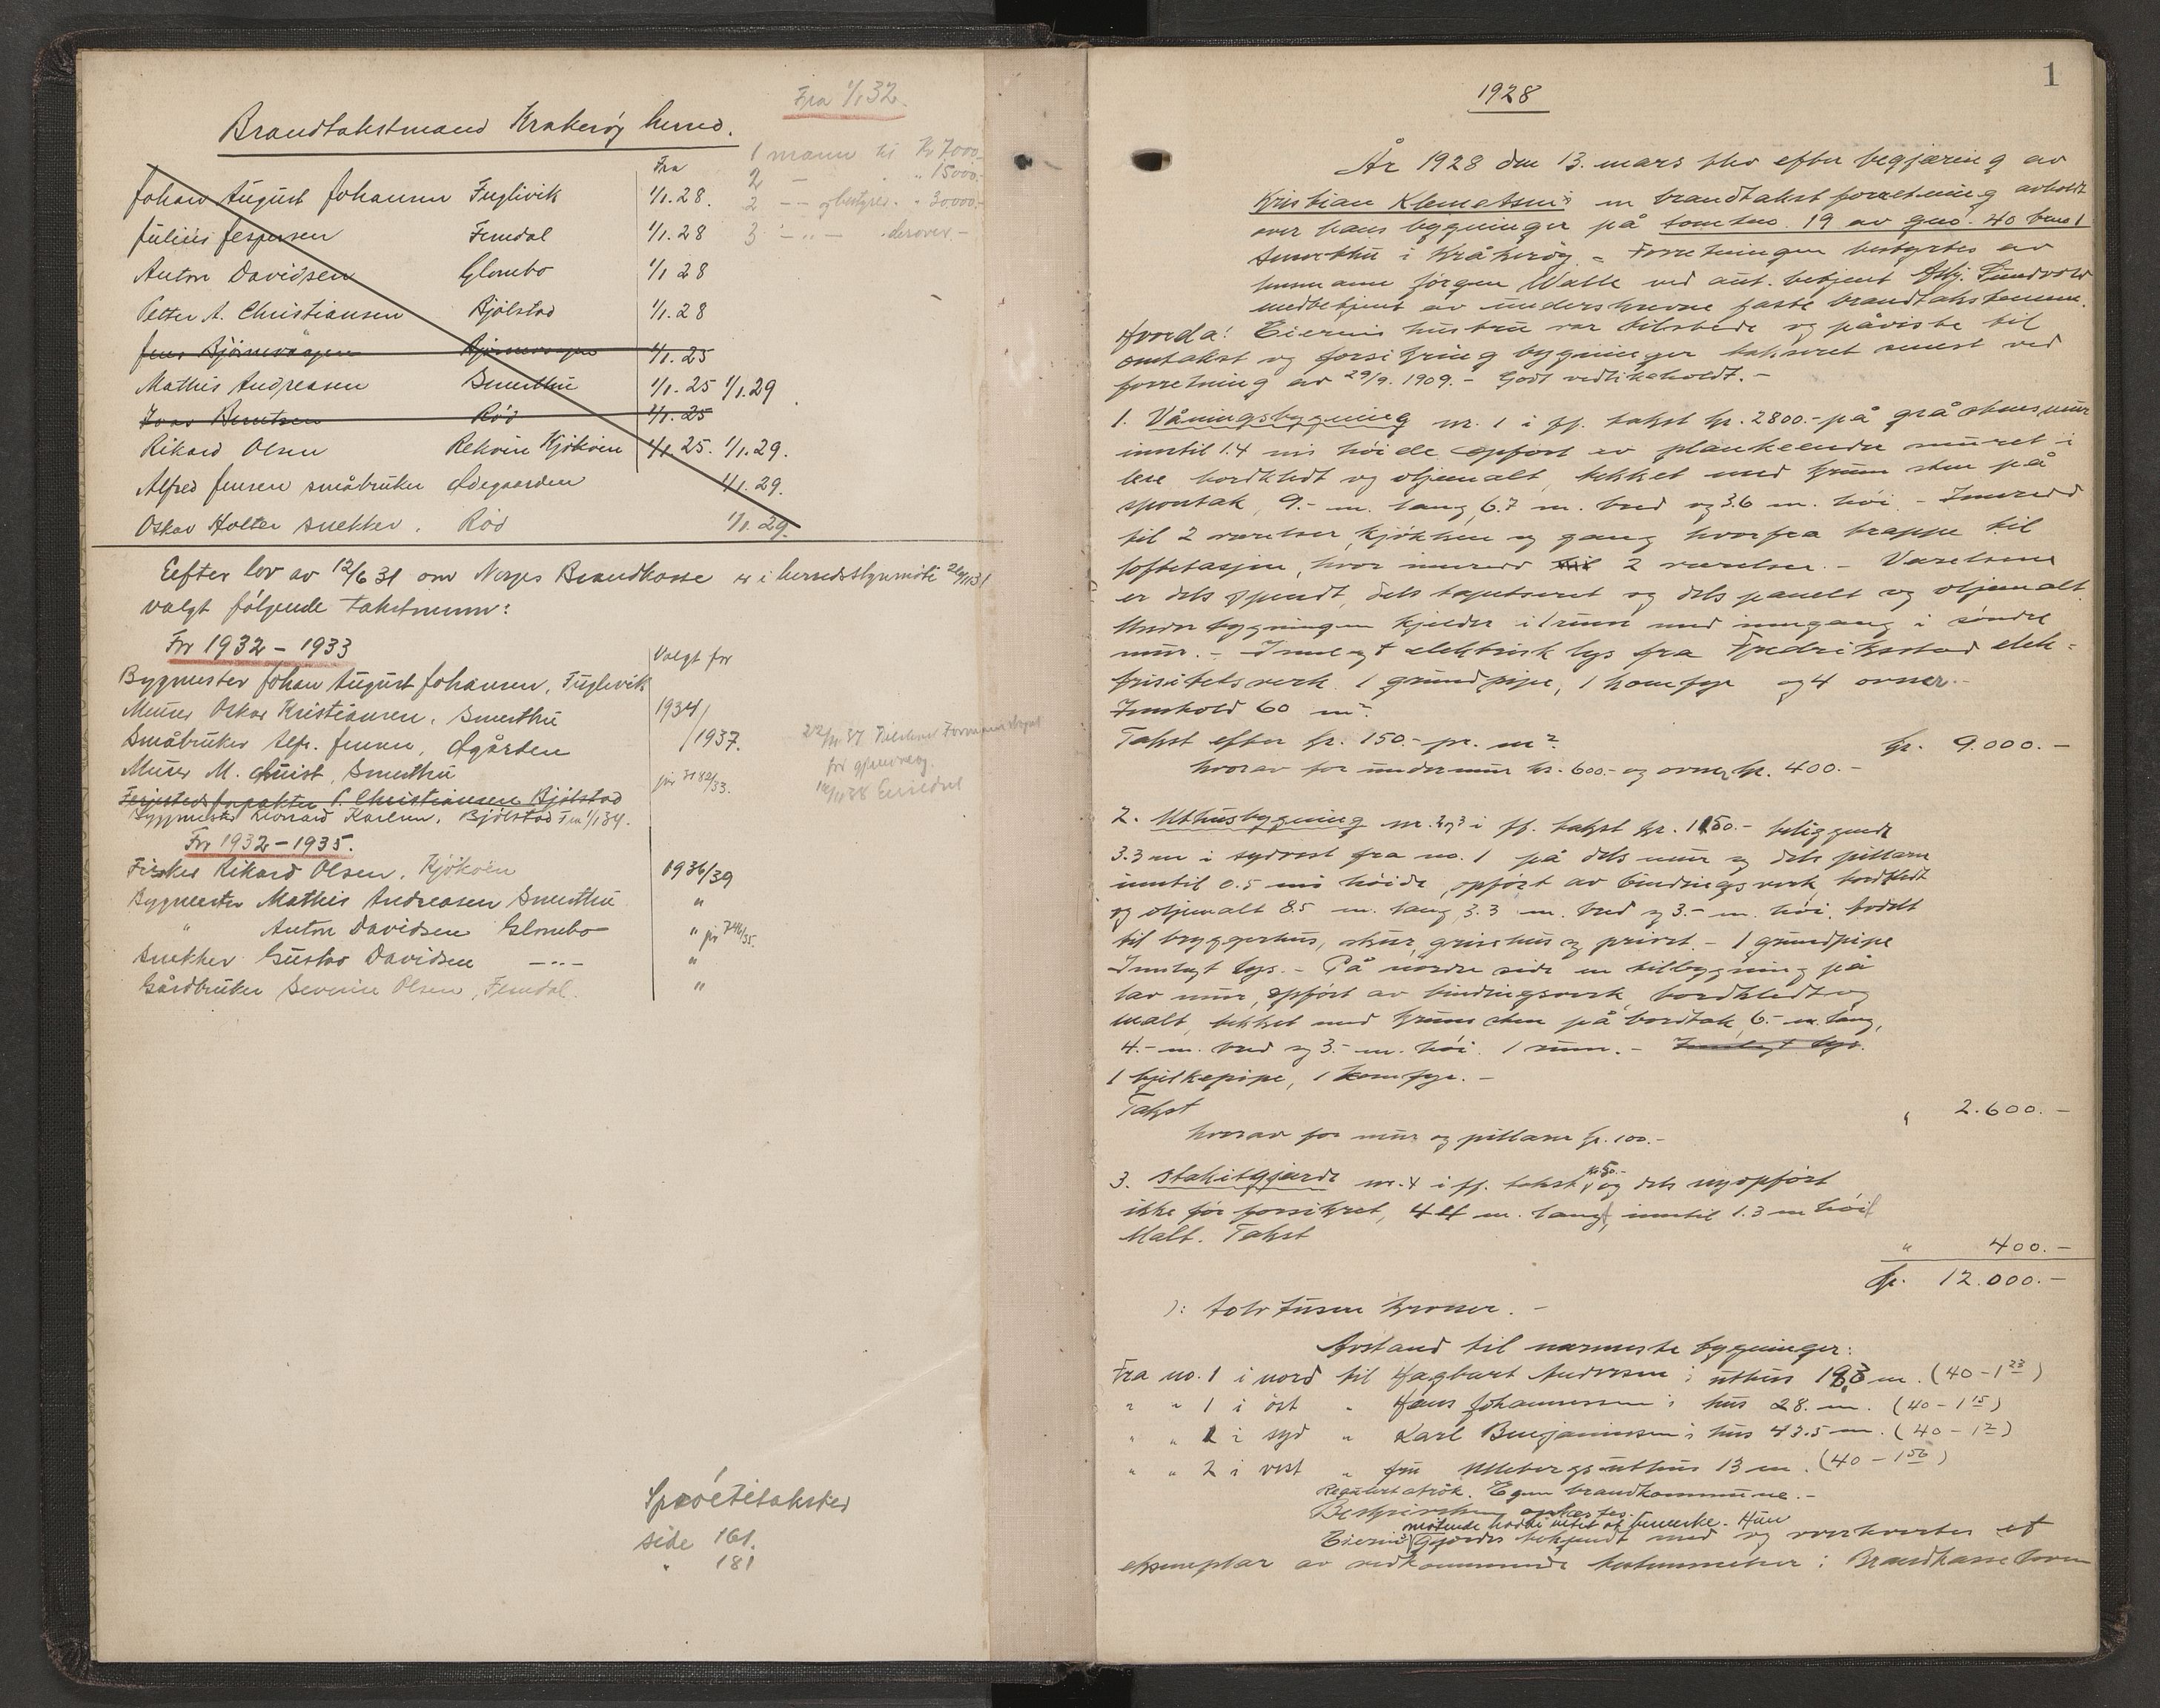 Fra 1/1 32.
Brandtakstmænd Krakerøy herred.
1 mann til Kr 7.000.-
2 — " " 15000.-
2 -- og bestyrer. " 30000.-
3 -"- derover.-
Fra
Johan August Johansen Fuglivik 1/1. 28.
Julius Jespersen Femdal 1/1. 28
Anton Davidsen Glombo 1/1 28
Petter A. Christiansen Bjølstad 1/1. 28
Jens Bjørnevaagen Bjørnevagen 1/1. 25
Mathis Andreasen Smerthu 1/1. 25 1/1. 29
Rød 1/1. 25
Rikard Olsen Rekvin Kjøkøen 1/1. 25. 1/1. 29.
Alfred Jensen småbruker Ødegaarden 1/1. 29.
Oskar Holter snekker. Rød 1/1. 29.
Eefter lov av 12/6 31 om Norges Brandkasse er i herredsstyremøte
valgt følgende takstmenn:
For 1932 – 1933
Valgt for
Bygmester Johan August Johansen, Fuglevik
Murer Oskar Kristiansen, Smerthu 1934/
Småbruker Alfr. Jensen, Øgården /1937.
Murer M. Quist, Smerthu
Christiansen Bjølstad
Byggmester Leonard Karlsen, Bjølstad Fra 1/1 34.
For 1932 – 1935.
Fisker Rikard Olsen, Kjøkøen 1936/39
Bygmester Mathis Andreasen Smerthu "
" Anton Davidsen Glombo "
Snekker Gustav Davidsen —"— "
Gårdbruker Severin Olsen, Femdal. "
side 161.
" 181
1
1928
År 1928 den 13. mars blev efter begjæring av
Kristian Klemetsen's en brandtakstforretning avholdt
over hans bygninger på tomten 19 av gno. 40 bno 1
Smerthu i Kråkerøy. - Forretningen bestyrtes av
lensmann Jørgen Walle ved aut. betjent Asbj. Sundvold
medbetjent av underskrevne faste brandtakstmenn.
Hvorda: Eierens hustru var tilstede og påviste til
omtakst og forsikring bygninger takseret senest ved
forretning av 29/9. 1909. - Godt vedlikeholdt. -
1. Våningsbygning nr. 1 i ff. takst kr. 2800.- på gråstensmur
inntil 1.4 ms høide opført av plankeender muret i
lere bordkledt og oljemalt, tekket med krum sten på
spontak, 9.- m. lang, 6.7 m. bred og 3.6 m. høi. - Innredd
til 2 værelser, kjøkken og gang hvorfra trappe til
loftetasjen, hvor innredd 2 værelser. - Værelsene
er dels spendt, dels tapetseret og dels panelt og oljemalt.
Under bygningen kjelder i 1 rum med nergang i søndre
mur. - Innlagt elektrisk lys fra Fredriksstad elek-
trisitetsverk. 1 grundpipe, 1 komfyr og 4 ovner.-
Innhold 60 m².
Takst efter kr. 150.- pr. m² kr. 9.000.-
hvorav for undermur kr. 600.- og ovner kr. 400.-
2. Uthusbygning nr. 2 og 3 i ff. takst kr. 1150.- beliggende
3.3 m i sydvest fra no. 1 på dels mur og dels pillarer
inntil 0.5 ms høide, opført av bindingsverk, bordkledt
og oljemalt 8.5 m. lang, 3.3 m. bred og 3.- m. høi, inddelt
til bryggerhus, skur, grisehus og privet. - 1 grundpipe
Innlagt lys. - På nordre side en tilbygning på
lav mur, opført av bindingsverk, bordkledt og
malt, tekket med krum sten på bordtak, 6.- m. lang,
4.- m. bred og 3.- m. høi. 1 rum. - Innlagt lys.
1 bjelkepipe, 1 komfyr. -
Takst " 2.600.-
hvorav for mur og pillarer kr. 100.-
3. Stakitgjerde nr. 4 i ff. takst kr. 50.- og dels nyopført
ikke før forsikret, 44 m. langt, inntil 1.3 m høit
Malt. Takst " 400.-
kr. 12.000.-
): tolv tusen kroner. -
Avstand til nærmeste bygninger:
Fra no. 1 i nord til Hagbart Andersens uthus m. (40 - 1 23)
" " 1 i øst " Hans Johannessens hus 28. m. (40 - 1 15)
" " 2 i syd " Karl Benjaminsens hus 43.5 m. (40 - 1 2)
" " 2 i vest " fru Ullebergs uthus 13 m. (40 - 1 56)
Regulert strøk. Egen brandkommune. -
Beskrivelsen oplestes.
møtende hadde intet at bemerke. Hun
Eieren gjordes bekjendt med og overleverte et
eksemplar av vedkommende bestemmelser i Brandkasseloven